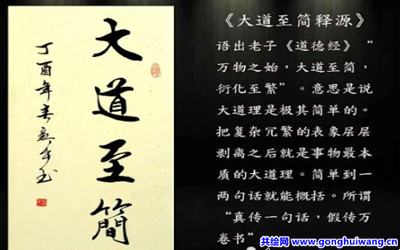 大道至簡
丁酉年春
《大道至简释源》
语出老子《道德经》“
万物之始，大道至简，
衍化至繁”。意思是说
大道理是极其简单的。
把复杂冗繁的表象层层
剥离之后就是事物最本
质的大道理。简单到一
两句话就能概括。所谓
“真传一句话，假传万
卷书”
共绘网www.gonghuiwang.cn